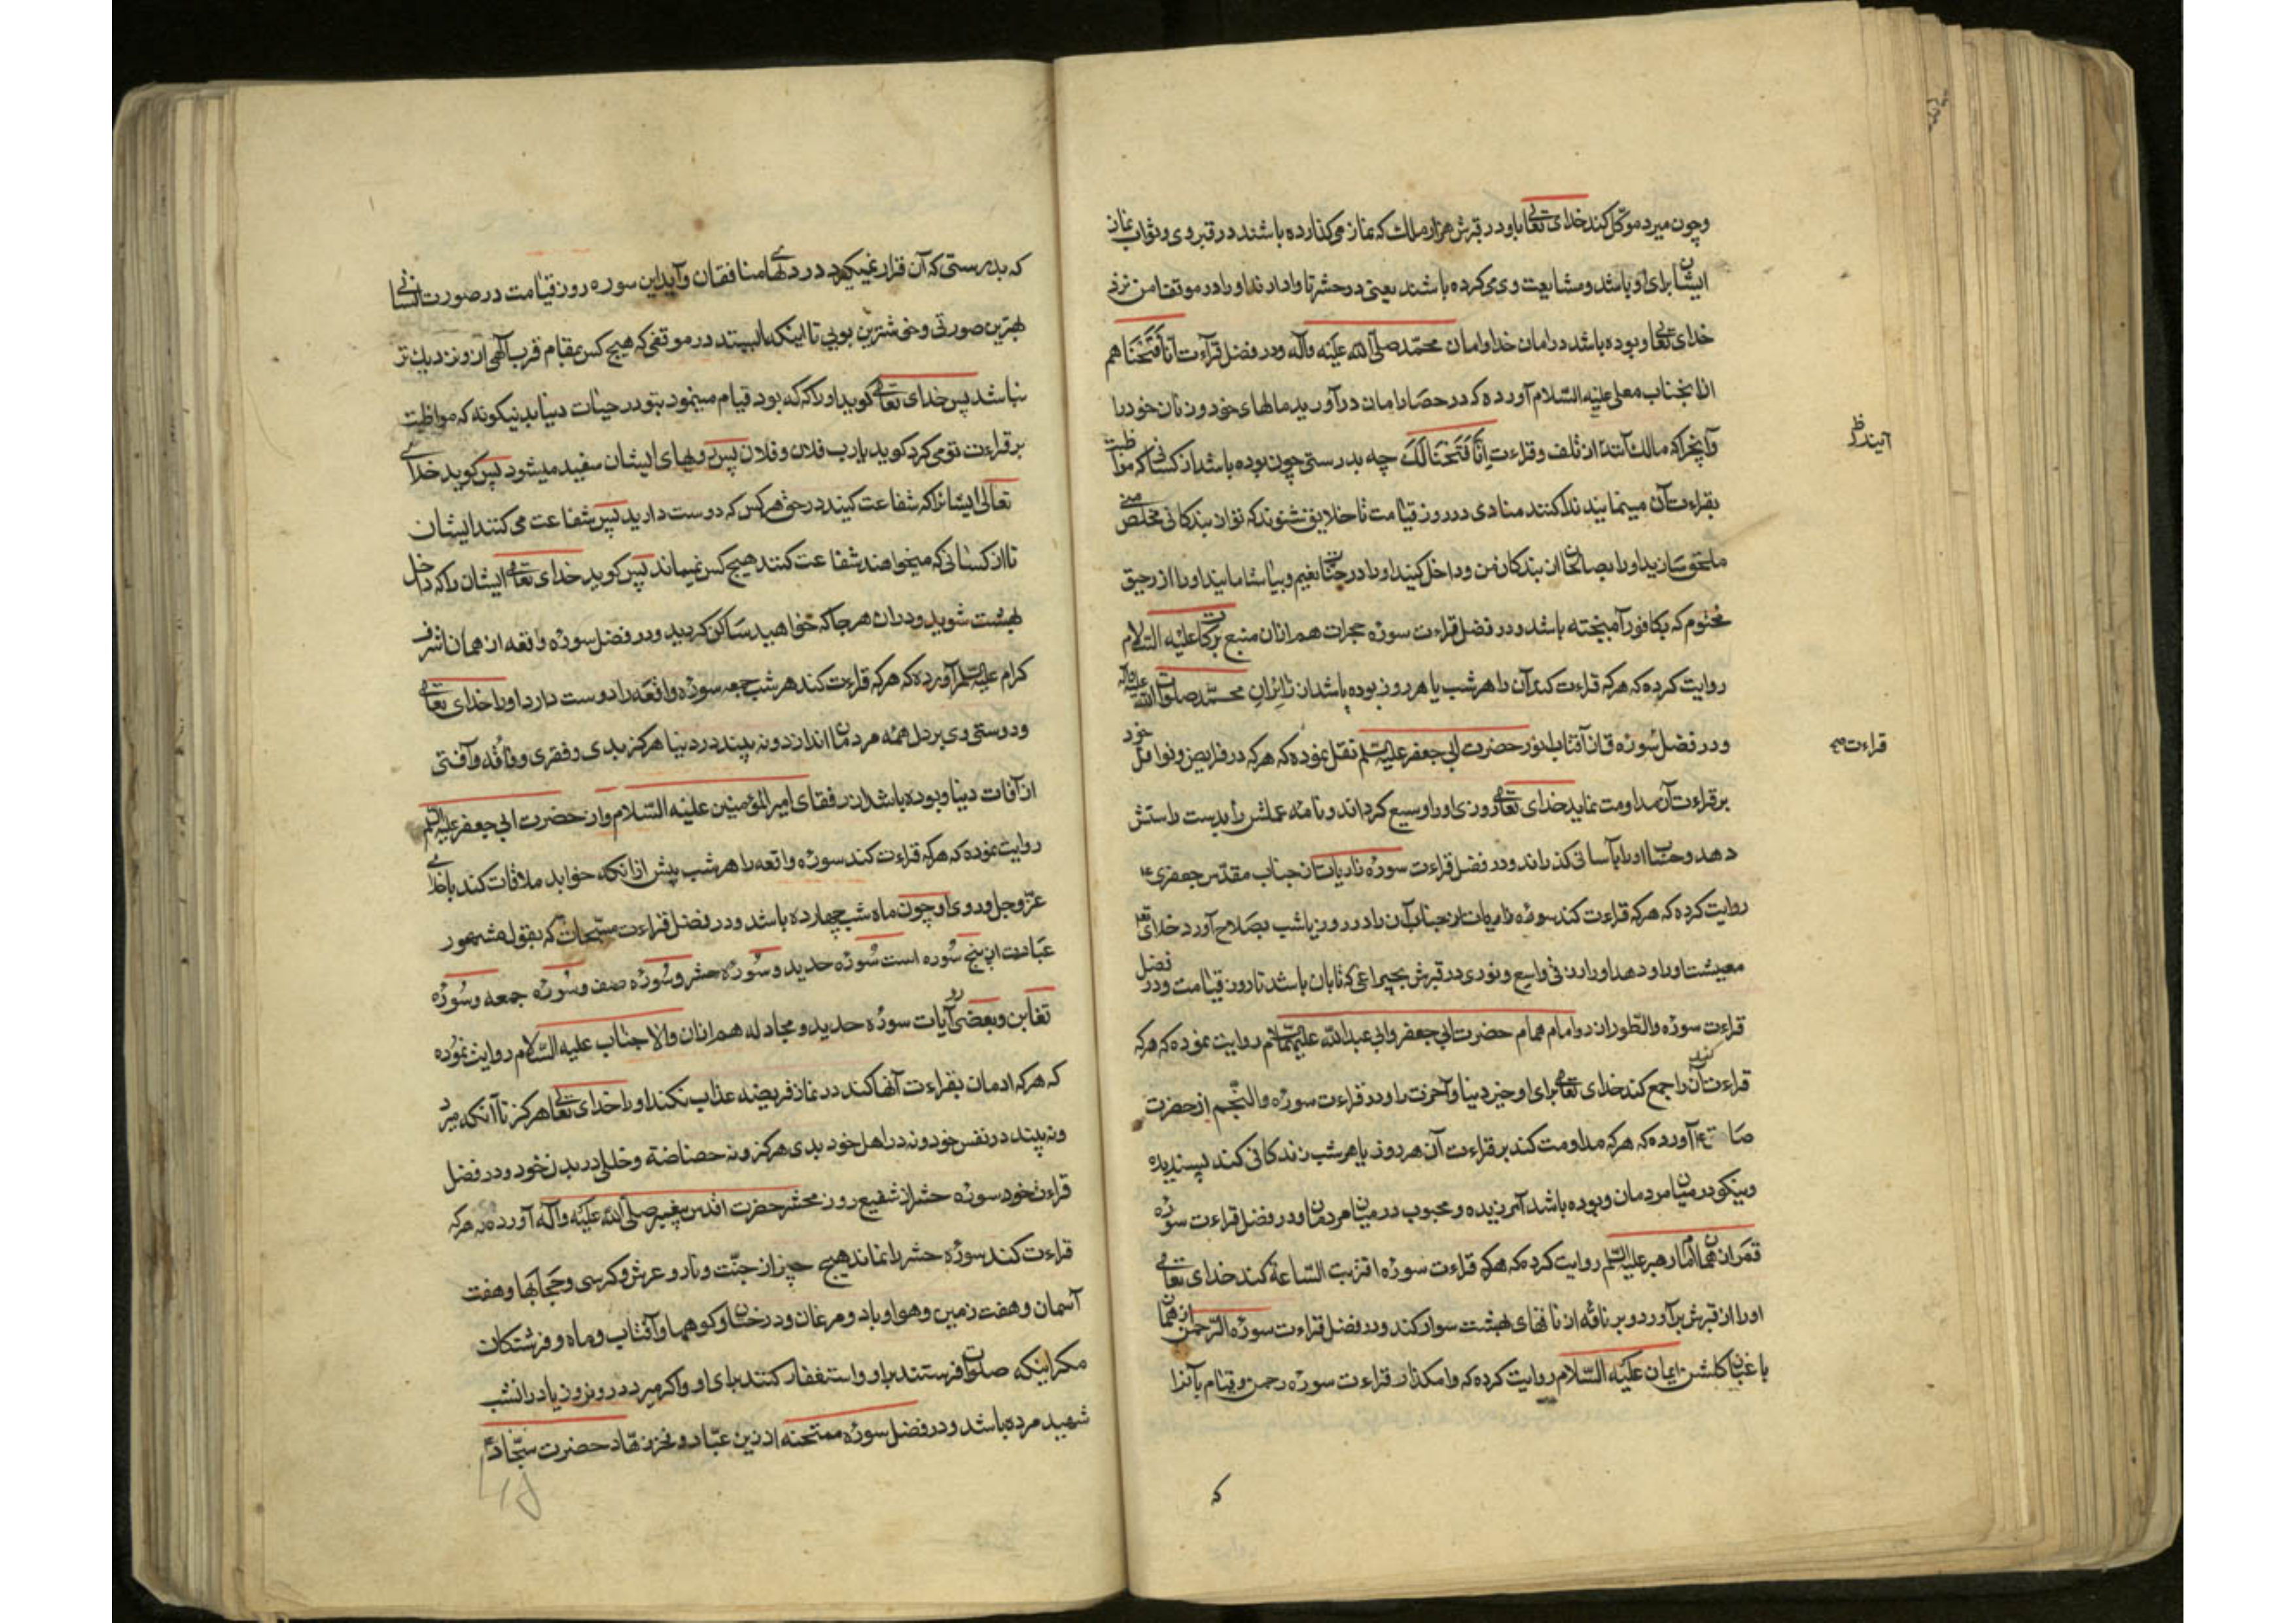 وچون میرد موکل کند خدای تعالی باو در قبرش هزار ملک که نماز می‌کذارده باشند در قبر وی و ثواب نماز
ایشان برای او باشد و مشایعت وی می‌کرده باشند یعنی در حشر تا وادارند او را در موقف امن نزد
خدای تعالی و بوده باشد در امان خدا و امان محمد صلی الله علیه وآله ودر فضل قرآءت انا فتحنا هم
از انجناب معلی علیه السلام آورده که در حصار امان درآورید مالهای خود و زنان خود را
وآنچرا که مالک آنند از تلف وقراءت اِنّا فَتَحْنا لَکَ چه بدرستی چون بوده باشد از کسانی که مواظبت
بقراءت آن مینمایند ندا کنند منادی در روز قیامت تا خلایق شنوند که تو از بندکانی مخلص منی
ملحق سازید او را بصالحان از بندکان من و داخل کنید او را در جنات نعیم و بیاشامانید او را از رحیق
مختوم که بکافور آمیخته باشد و در فضل قراءت سوره حجرات هم از ان منبع برکات علیه السلام
روایت کرده که هرکه قراءت کند آن را هر شب یا هر روز بوده باشد از زایران محمد صلوات الله علیه وآله
ودر فضل سوره ق از آفتاب انور حضرت ابی جعفر علیه السلم نقل نموده که هرکه در فرایض و نوافل خود
بر قراءت آن مداومت نماید خدای تعالی روزی او را وسیع کرداند و نامه عملش را بدست راستش
دهد وحساب او را باسانی کذراند ودر فضل قراءت سوره ذاریات از جناب مقدس جعفری ع
روایت کرده که هرکه قراءت کند سوره ذاریات از جناب آن را در روز یا شب بصلاح آورد خدای تعالی
معیشت او را و دهد او را رزقی واسع و نوری در قبرش بچراغی که تابان باشد تا روز قیامت ودر فضل
قراءت سوره والطور از دو امام همام حضرت ابی جعفر وابی عبدالله علیهما السلام روایت نموده که هرکه
قراءت آن کند جمع کند خدای تعالی برای او خیر دنیا و آخرت را ودر قراءت سوره والنجم از حضرت
صادق ع آورده که هرکه مداومت کند بر قراءت آن هر روز یا هر شب زندکانی کند پسندیده
ونیکو در میان مردمان وبوده باشد آمرزیده و محبوب در میان مردمان ودر فضل قراءت سوره
قمر از همان امام رهبر علیه السلم روایت کرده که هرکه قراءت سوره اقتربت الساعة کند خدای تعالی
او را از قبرش برآورد و بر ناقه از ناقهای بهشت سوار کند ودر فضل قراءت سوره الرحمن از همان
باغبان کلشن ایمان علیه السلام روایت کرده که وامکذار قراءت سوره رحمن و قیام بآنرا
که
قراءت صح
که بدرستی که آن قرار نمیکیرد در دلهای منافقان وآید این سوره روز قیامت در صورت انسانی
بهترین صورتی وخوشترین بویی تا اینکه بایستد در موقفی که هیچ کس بمقام قرب الهی از و نزدیک تر
نباشد پس خدای تعالی کوید او را که که بود قیام مینمود بتو در حیات دنیا بدینکونه که مواظبت
بر قراءت تو می‌کرد کوید یا رب فلان و فلان پس رویهای ایشان سفید میشود پس کوید خدای
تعالی ایشانرا که شفاعت کنید در حق هر کس که دوست دارید پس شفاعت می کنند ایشان
تا از کسانی که میخواهند شفاعت کنند هیچ کس نمیماند پس کوید خدای تعالی ایشان را که داخل
بهشت شوید ودران هر جا که خواهید ساکن کردید ودر فضل سوره واقعه از همان اشرف
کرام علیه السلم آورده که هرکه قراءت کند هر شب جمعه سوره واقعه را دوست دارد او را خدای تعالی
ودوستی وی بر دل همه مردمان اندازد ونه بیند در دنیا هرکز بدی وفقری وفاقه وآفتی
از آفات دنیا وبوده باشد از رفقای امیر المؤمنین علیه السلام واز حضرت ابی جعفر علیه السلم
روایت نموده که هرکه قراءت کند سوره واقعه را هر شب پیش از انکه خوابد ملاقات کند با خدای
عز وجل وروی او چون ماه شب چهارده باشد ودر فضل قراءت مسبحات که بقول مشهور
عبارت از پنج سوره است سوره حدید وسوره حشر وسوره صف وسوره جمعه وسوره
تغابن وبعضی روایات سوره حدید و مجادله هم از ان والاجناب علیه السلام روایت نموده
که هرکه ادمان بقراءت آنها کند در نماز فریضه عذاب نکند او را خدای تعالی هرکز تا آنکه میرد
ونه بیند در نفس خود ونه در اهل خود بدی هرکز ونه خصاصة وخللی در بدن خود ودر فضل
قراءت خود سوره حشر از شفیع روز محشر حضرت اقدس پیغمبر صلی الله علیه وآله آورده که هرکه
قراءت کند سوره حشر را نماند هیچ چیز از جنت ونار وعرش وکرسی وحجابها وهفت
آسمان وهفت زمین وهوا وباد ومرغان ودرختان وکوهها وآفتاب وماه وفرشتکان
مکر اینکه صلوات فرستند براو واستغفار کنند برای او واکر میرد در روز یا در انشب
شهید مرده باشد ودر فضل سوره ممتحنه از زین عباد وفخر زهاد حضرت سجاد ع